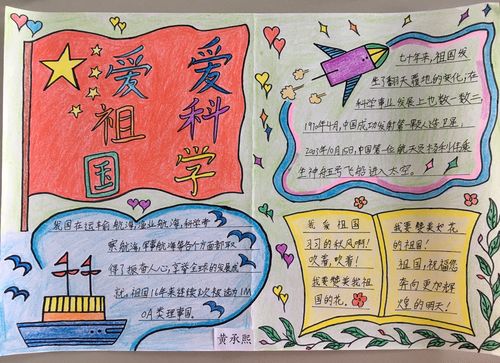 爱科学
爱祖国
七十年来，祖国发
生了翻天覆地的变化；在
科学事业发展上也数一数二，
1970年4月，中国成功发射第一颗人造卫星，
2003年10月15日，中国第一位航天员杨利伟乘
坐神舟五号飞船进入太空。
我国在运输航海，渔业航海，科学考
察航海，军事航海等各个方面都取
得了振奋人心，享誉全球的发展成
就。祖国16年来连续8次被选为IM
OA类理事国。
我爱祖国
羽的秋风啊！
吹着，吹着！
我要赞美我祖
国的花。
我要赞美如花
的祖国！
祖国，祝福您
奔向更加辉
煌的明天！
黄承熙